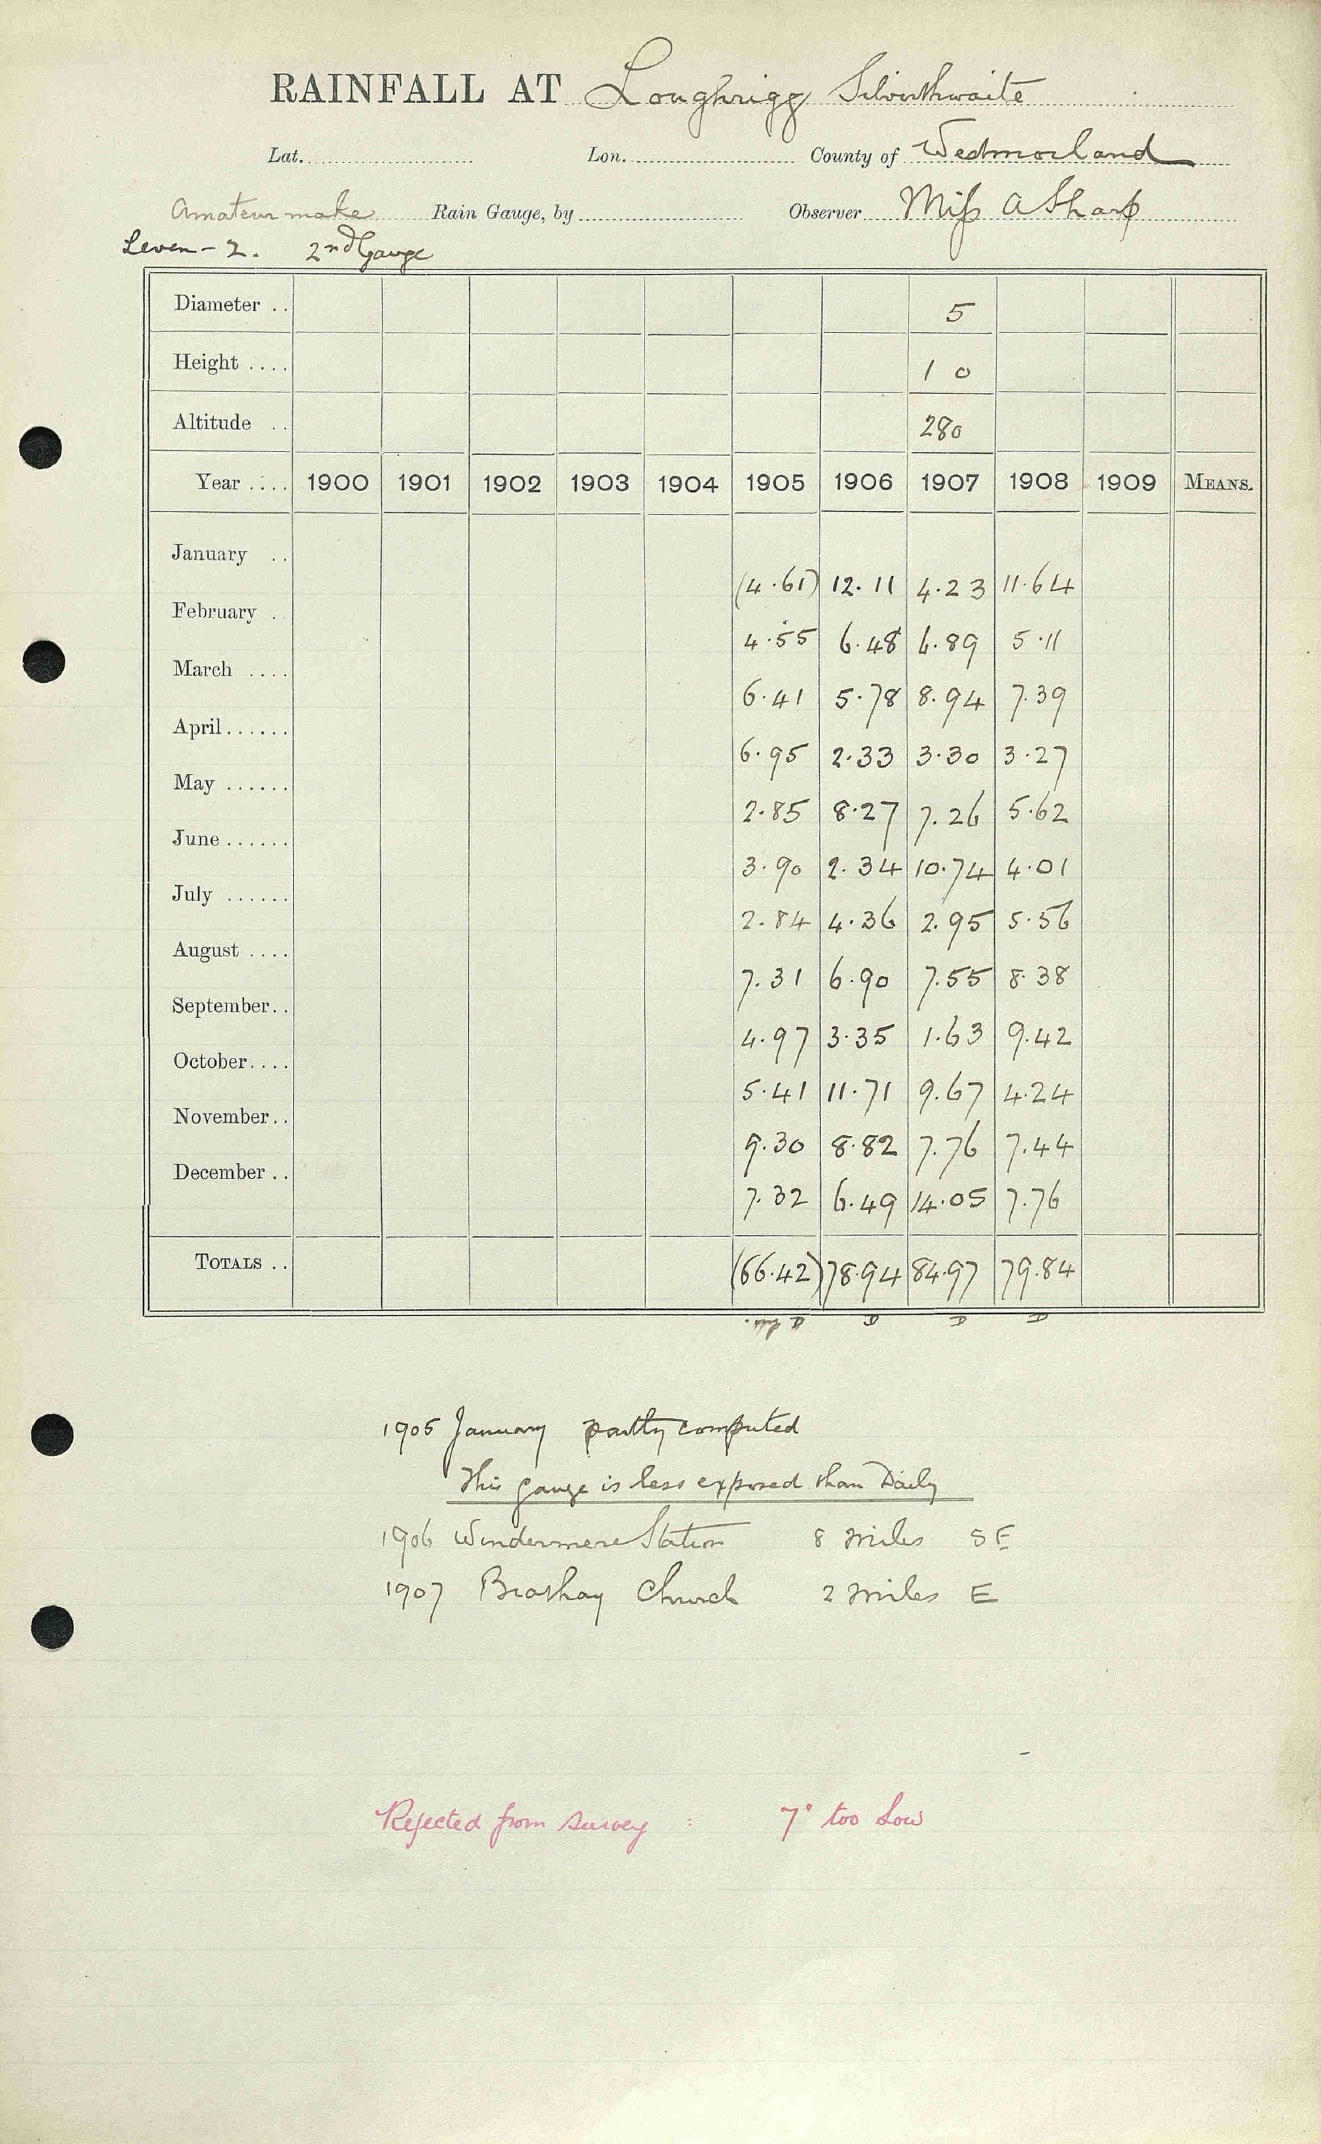 RAINFALL AT Loughrigg Silverthwaite
Lat. Lon. County of Westmorland
Amateur make Rain Gauge, by Observer Miss A Sharp
Leven - 2. 2nd Gauge
Diameter .. 5
Height .... 1 0
Altitude .. 280
Year .... 1900 1901 1902 1903 1904 1905 1906 1907 1908 1909 MEANS.
January .. (4.61) 12.11 4.23 11.64
February . 4.55 6.48 6.89 5.11
March .... 6.41 5.78 8.94 7.39
April...... 6.95 2.33 3.30 3.27
May ...... 2.85 8.27 7.26 5.62
June...... 3.90 2.34 10.74 4.01
July ...... 2.84 4.36 2.95 5.56
August .... 7.31 6.90 7.55 8.38
September.. 4.97 3.35 1.63 9.42
October.... 5.41 11.71 9.67 4.24
November.. 9.30 8.82 7.76 7.44
December .. 7.32 6.49 14.05 7.76
TOTALS .. (66.42) 78.94 84.97 79.84
D D D D
1905 January partly computed
This gauge is less exposed than Daily
1906 Windermere Station 8 miles SE
1907 Brathay Church 2 miles E
Rejected from survey : 7" too low